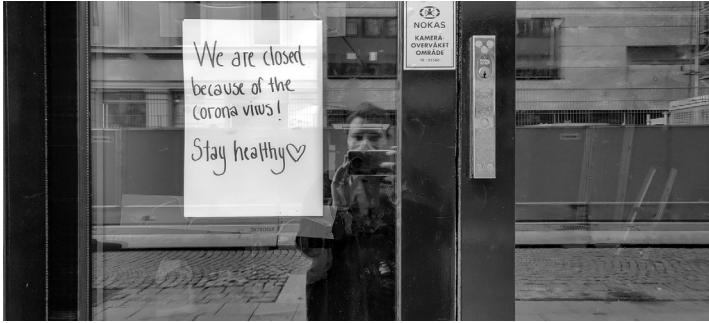 We are closed
because of the
corona virus!
Stay healthy♡
NOKAS
KAMERA-
OVERVÅKET
OMRÅDE